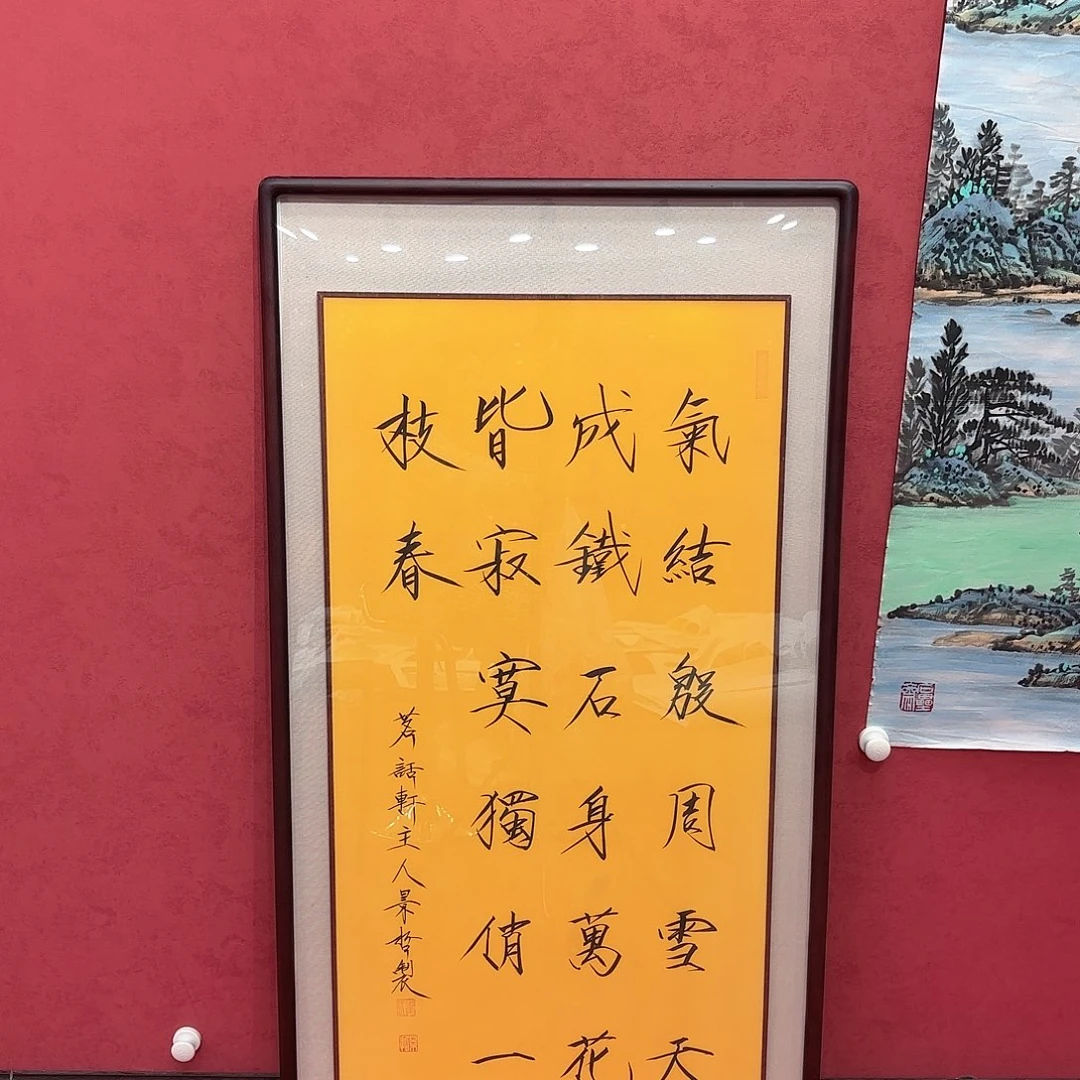 氣結殷周雪天
成鐵石身萬花
皆寂寞獨俏一
枝春
茗話軒主人景哲製